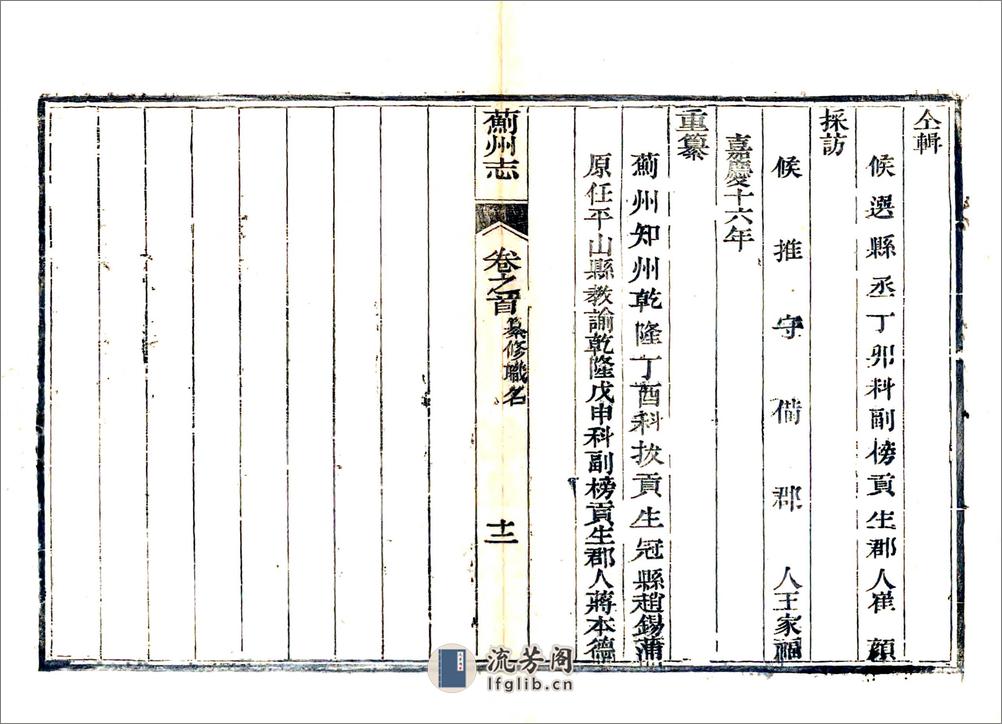 仝輯
候選縣丞丁卯科副榜貢生郡人崔顔
採訪
候推守備郡人王家福
嘉慶十六年
重纂
薊州知州乾隆丁酉科拔貢生冠縣趙錫蒲
原任平山縣教諭乾隆戊申科副榜貢生郡人蔣本德
薊州志
卷之首 纂修職名
十二
流芳阁
lfglib.cn